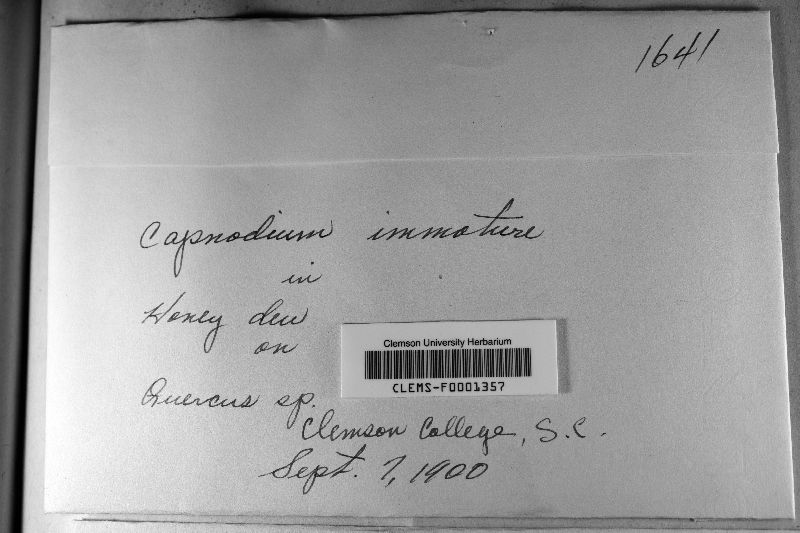 1641
Capnodium immature
in
Honey dew
on
Clemson University Herbarium
CLEMS-F0001357
Quercus sp.
Clemson College, S.C.
Sept. 7, 1900